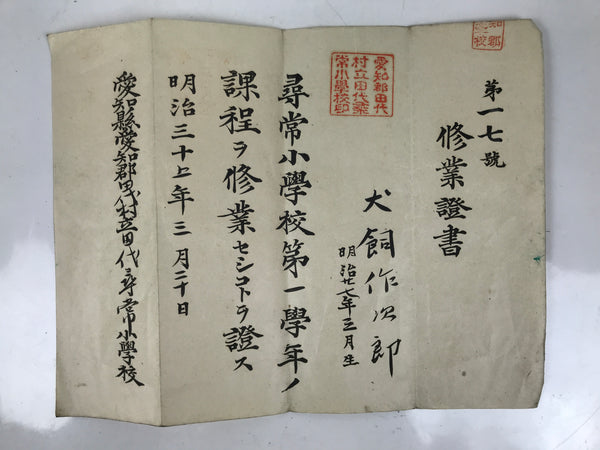 知郡
第一七號
修業證書
愛知郡田代
村立田代尋
常小學校印
犬飼作次郎
明治廿七年三月生
尋常小學校第一學年ノ
課程ヲ修業セシコトヲ證ス
明治三十七年三月二十日
愛知縣愛知郡田代村立田代尋常小學校